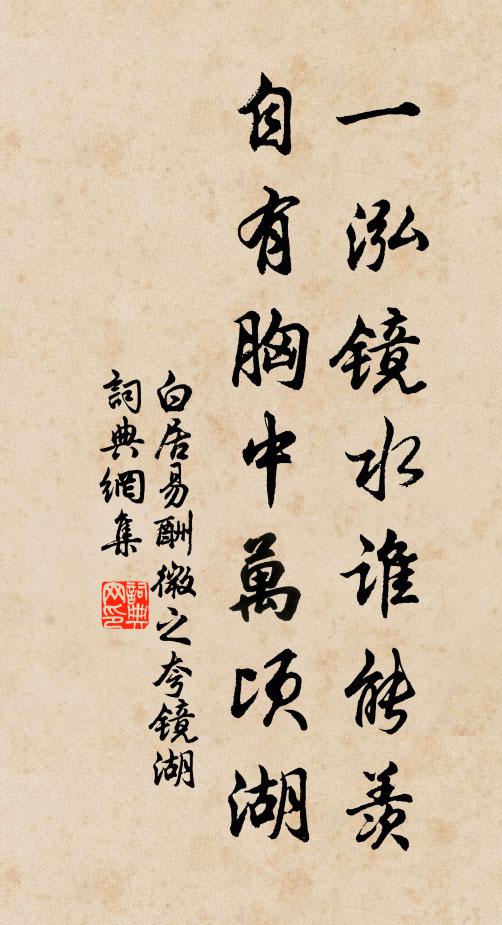 一泓镜水谁能羡
自有胸中萬顷湖
白居易酬微之夸镜湖
詞典網集
詞典网印